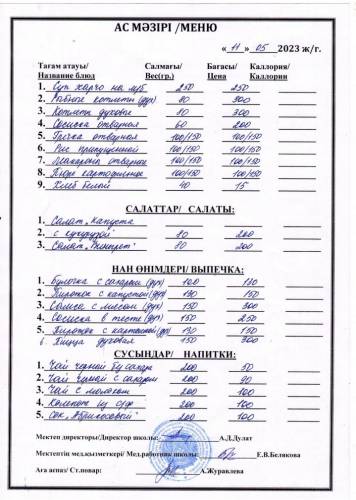 АС МӘЗІРІ /МЕНЮ
« 11 » 05 2023 ж/г.
Тағам атауы/ Салмағы/ Бағасы/ Каллория/
Название блюд Вес(гр.) Цена Каллории
1. Суп харчо на м/б 250 250
2. Рыбные котлеты (дух) 80 300
3. Котлета духовая 80 300
4. Сосиска отварная 60 200
5. Гречка отварная 100/150 100/150
6. Рис припущенный 100/150 100/150
7. Макароны отварные 100/150 100/150
8. Пюре картофельное 100/150 100/150
9. Хлеб белый 40 15
САЛАТТАР/ САЛАТЫ:
1. Салат „капуста
2. с кукурузой" 80 200
3. Салат „Винегрет" 80 200
НАН ӨНІМДЕРІ/ ВЫПЕЧКА:
1. Булочка с сахаром (дух) 100
2. Пирожок с капустой (дух) 130 150
3. Самса с мясом (дух) 150 300
4. Сосиска в тесте (дух) 150 250
5. Пирожок с картошкой (дух) 130 150
6. Пицца духовая 150 300
СУСЫНДАР/ НАПИТКИ:
1. Чай черный б/сахара 200 50
2. Чай черный с сахаром 200 90
3. Чай с молоком 200 100
4. Компот из с/ф 200 100
5. Сок „Яблоковый" 200 100
Мектеп директоры/Директор школы: А.Д.Дулат
Мектептің мед.қызметкері/ Мед.работник школы: Е.В.Белякова
Аға аспаз/ Ст.повар: А.Журавлева